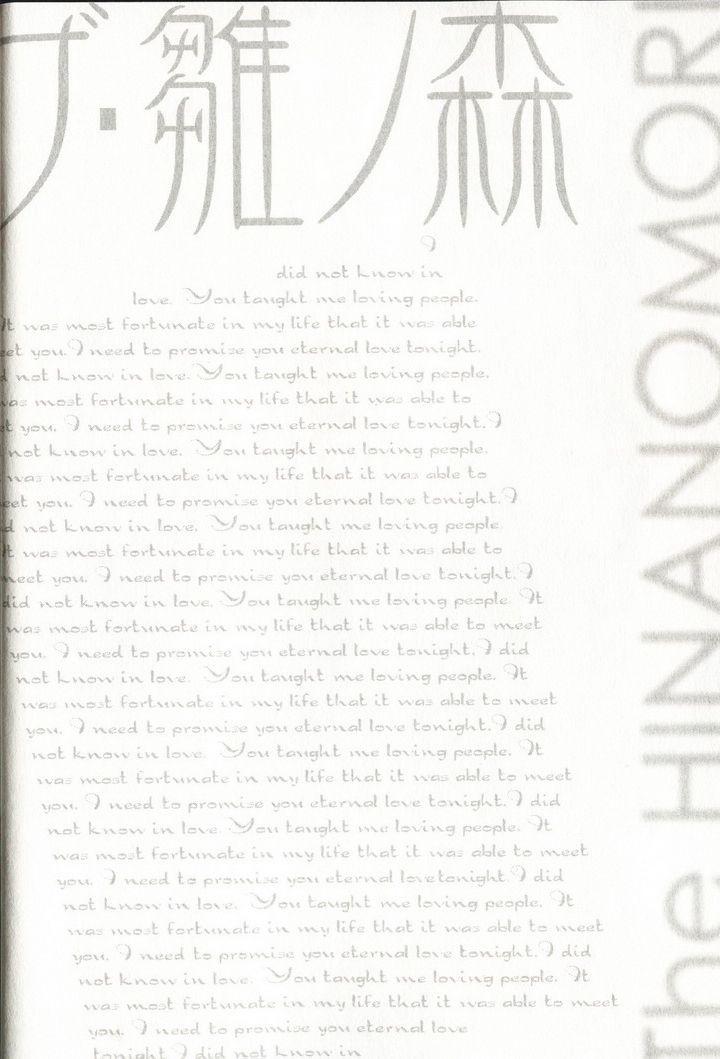 ・雛ノ森
I
did not know in
love. You taught me loving people.
It was most fortunate in my life that it was able
eet you. I need to promise you eternal love tonight.
d not know in love. You taught me loving people.
was most fortunate in my life that it was able to
et you. I need to promise you eternal love tonight. I
not know in love. You taught me loving people.
was most fortunate in my life that it was able to
eet you. I need to promise you eternal love tonight. I
d not know in love. You taught me loving people.
It was most fortunate in my life that it was able to
meet you. I need to promise you eternal love tonight. I
did not know in love. You taught me loving people. It
was most fortunate in my life that it was able to meet
you. I need to promise you eternal love tonight. I did
not know in love. You taught me loving people. It
was most fortunate in my life that it was able to meet
you. I need to promise you eternal love tonight. I did
not know in love. You taught me loving people. It
was most fortunate in my life that it was able to meet
you. I need to promise you eternal love tonight. I did
not know in love. You taught me loving people. It
was most fortunate in my life that it was able to meet
you. I need to promise you eternal lovetonight. I did
not know in love. You taught me loving people. It
was most fortunate in my life that it was able to meet
you. I need to promise you eternal love tonight. I did
not know in love. You taught me loving people. It
was most fortunate in my life that it was able to meet
you. I need to promise you eternal love
tonight. I did not know in
The HINANOMORI